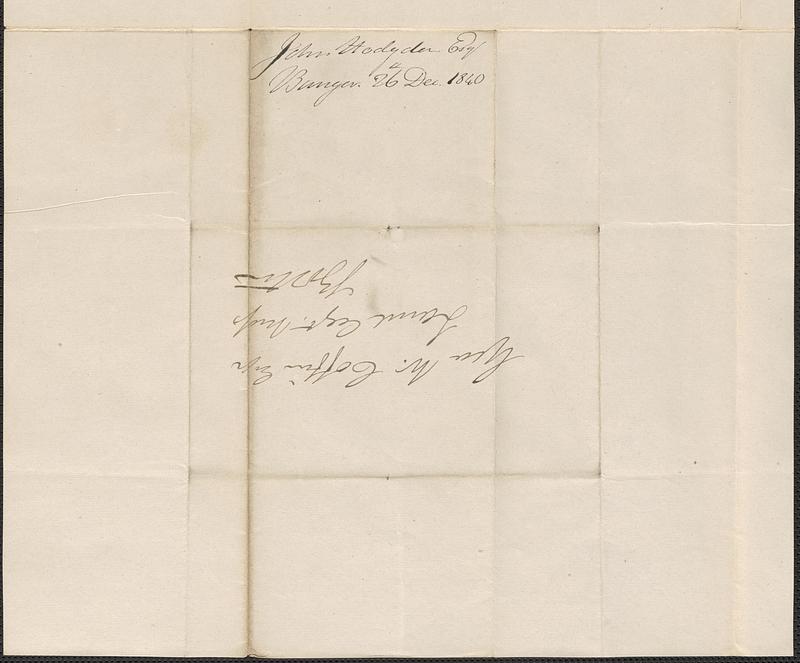 John Hodgdon Esq
Bangor. 26 Dec. 1840
Geo. W. Coffin Esqr
Land Agt. Mass
Boston